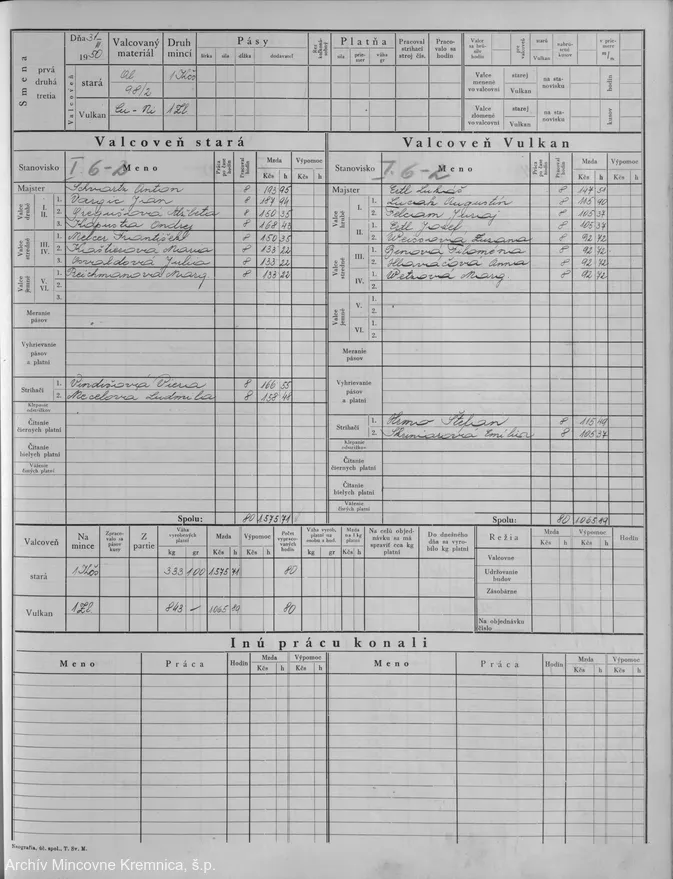 Smena
prvá
druhá
tretia
Dňa 31
II
1950
Valcovaný materiál
Druh mincí
Pásy
šírka sila dĺžka dodavateľ
Platňa
sila váha gr
Pracoval strihací stroj čís.
Pracovalo sa hodín
Valcoveň
stará
Al 98/2
1 Kčs
Vulkan
Cu-Ni
1 Zl.
Valce menené vo valcovni
starej
Vulkan
na stanovisku
hodín
Valce zlomené vo valcovni
starej
Vulkan
na stanovisku
kusov
Valcoveň stará
Stanovisko I. 6-2 Meno
Práca po čase hodín
Pracoval hodín
Mzda Výpomoc
Kčs h Kčs h
Majster Schwartz Anton 8 193 95
Valce hrubé I. II.
1. Vargic Jan 8 187 94
2. Gregušová Alžbeta 8 150 35
3. Kapusta Ondrej 8 168 43
Valce stredné III. IV.
1. Melcer František 8 150 35
2. Mária 8 133 22
3. Osvaldová Júlia 8 133 22
Valce jemné V. VI.
1. Reichmanová Marg 8 133 22
2.
3.
Meranie pásov
Vyhrievanie pásov a platní
Strihači
1. Vindišová Viera 8 166 55
2. Mecelová Ludmila 8 158 48
Klepanie odstrižkov
Čítanie čiernych platní
Čítanie bielych platní
Váženie čistých platní
Spolu: 80 1575 71
Valcoveň Vulkan
Stanovisko I. 6-2 Meno
Práca po čase hodín
Pracoval hodín
Mzda Výpomoc
Kčs h Kčs h
Majster Ertl Lukáš 8 147 51
Valce hrubé I.
1. Lucah Augustín 8 115 90
2. Felcam Juraj 8 105 37
II.
1. Ertl Jozef 8 105 37
2. Weissová Zuzana 8 92 72
Valce stredné III.
1. Benová Filoména 8 92 72
2. Hlaváčová Anna 8 92 72
IV.
1. Petrová Marg 8 92 72
2.
Valce jemné V.
1.
2.
VI.
1.
2.
Meranie pásov
Vyhrievanie pásov a platní
Strihači
1. Hrmo Štefan 8 115 49
2. Skmiarová Emília 8 105 37
Klepanie odstrižkov
Čítanie čiernych platní
Čítanie bielych platní
Váženie čistých platní
Spolu: 80 1065 19
Valcoveň
Na mince
Z partie
Váha vyrobených platní
kg gr
Mzda
Kčs h
Výpomoc
Kčs h
Počet vypracovaných hodín
Mzda na 1 kg platní
Kčs h
Na celú objednávku sa má spraviť čca kg platní
Do dnešného dňa sa vyrobilo kg platní
stará 1 Kčs 333 100 1575 71 80
Vulkan 1 Zl. 843 – 1065 19 80
Režia
Mzda Výpomoc Hodín
Kčs h Kčs h
Valcovne
Udržovanie budov
Zásobárne
Na objednávku číslo
Inú prácu konali
Meno Práca Hodín Mzda Výpomoc
Kčs h Kčs h
Meno Práca Hodín Mzda Výpomoc
Kčs h Kčs h
Neografia, úč. spol., T. Sv. M.
Archív Mincovne Kremnica, š.p.